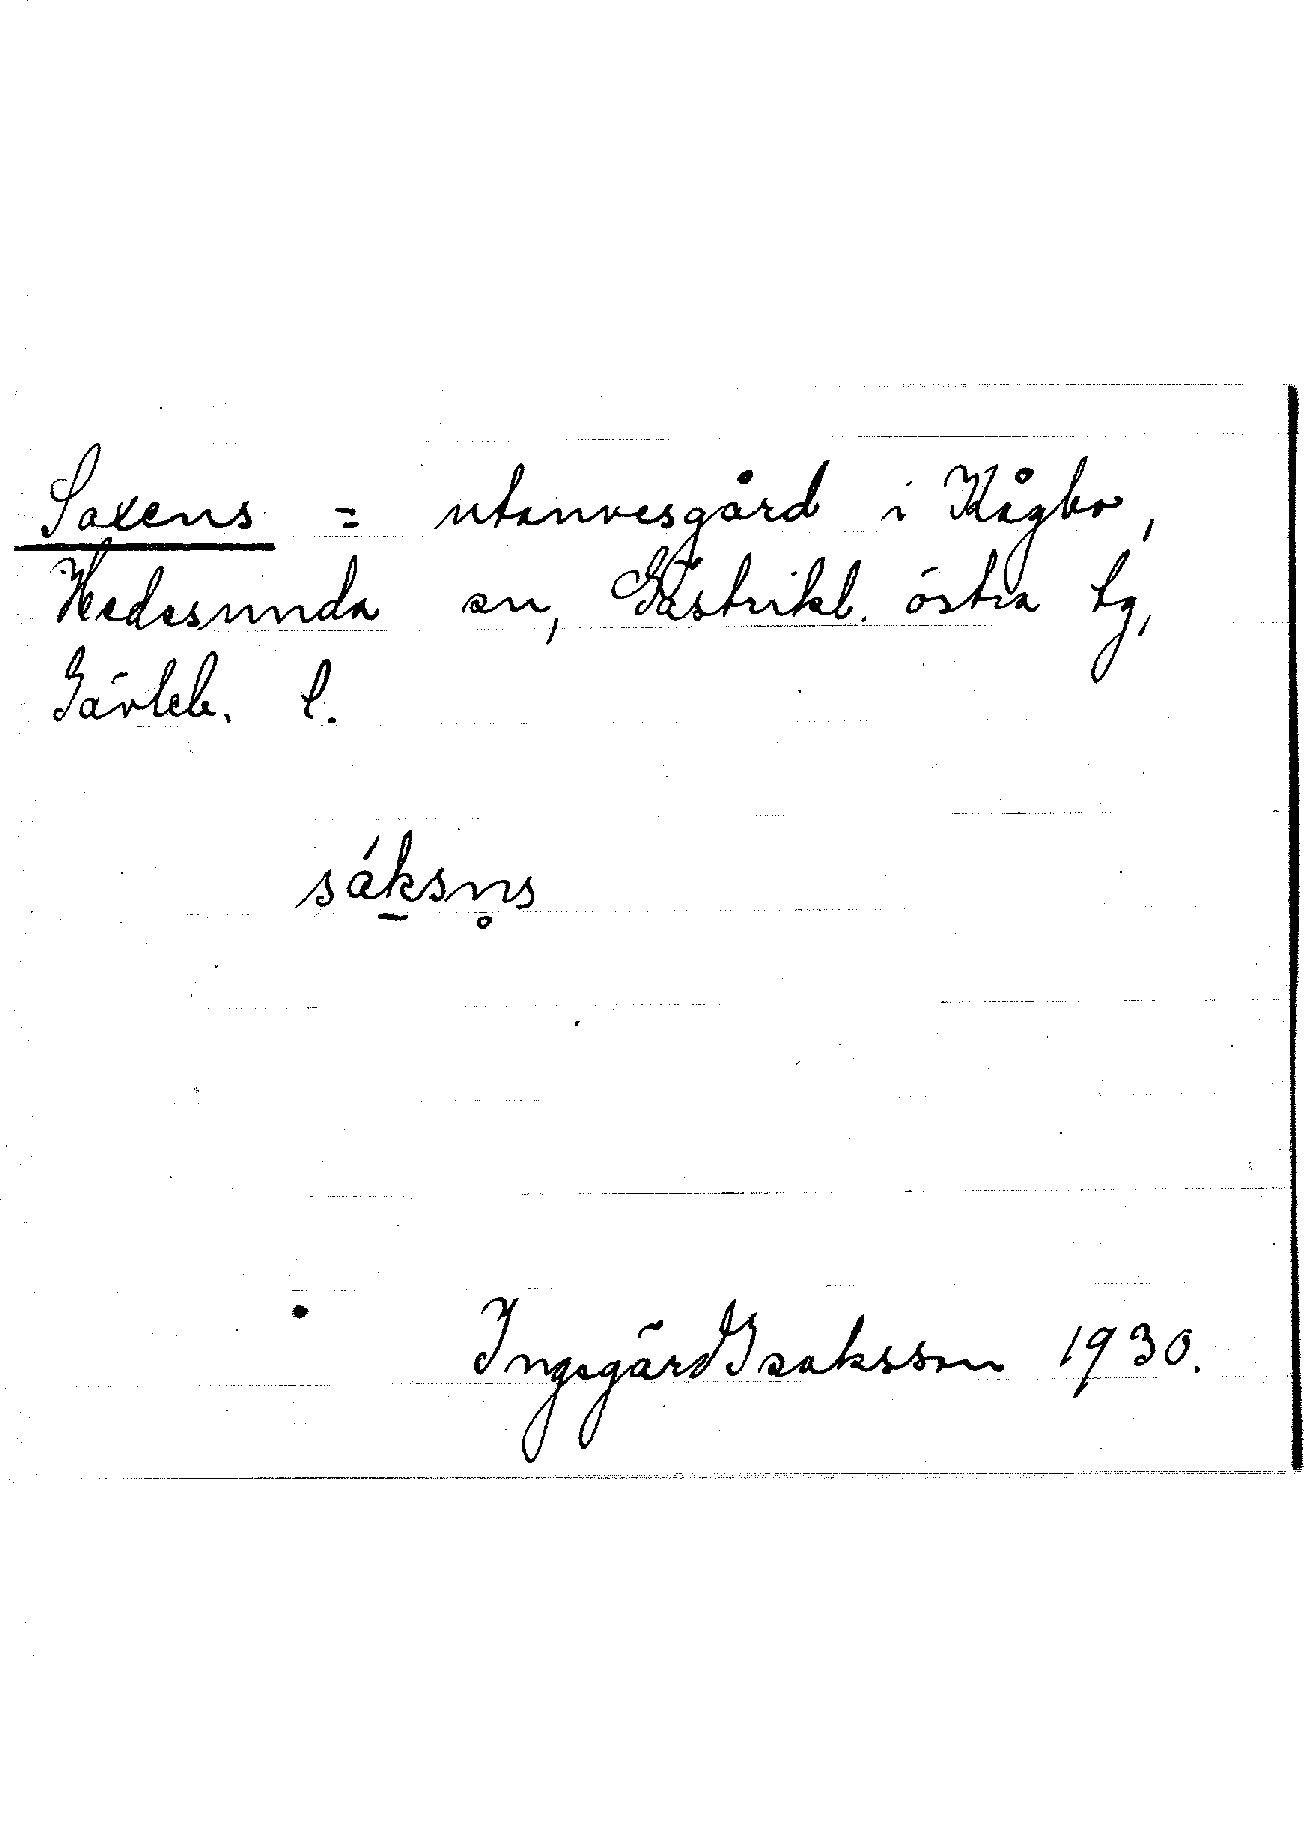 Saxens = utanvesgård i Kågbo,
Hedesunda sn, Gästrikl. östra tg,
Gävleb. l.
sáksn̥s
Ingegärd Isaksson 1930.